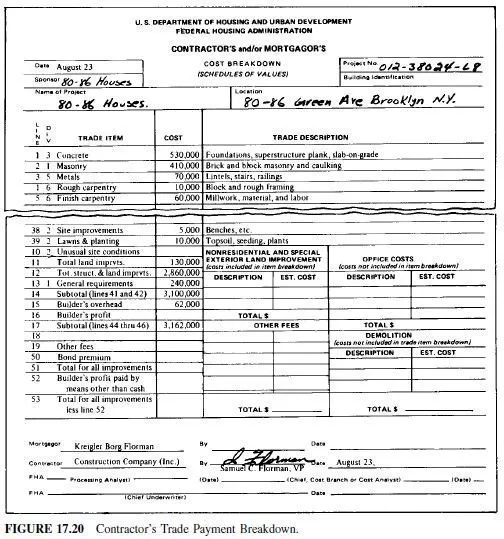 U. S. DEPARTMENT OF HOUSING AND URBAN DEVELOPMENT
FEDERAL HOUSING ADMINISTRATION
CONTRACTOR'S and/or MORTGAGOR'S
Date August 23
COST BREAKDOWN
(SCHEDULES OF VALUES)
Project No. 012-38024-L8
Sponsor 80-86 Houses
Building Identification
Name of Project
80-86 Houses.
Location
80-86 Green Ave Brooklyn N.Y.
LINE DIV TRADE ITEM COST TRADE DESCRIPTION
1 3 Concrete 530,000 Foundations, superstructure plank, slab-on-grade
2 1 Masonry 410,000 Brick and block masonry and caulking
3 5 Metals 70,000 Lintels, stairs, railings
1 6 Rough carpentry 10,000 Block and rough framing
5 6 Finish carpentry 60,000 Millwork, material, and labor
38 2 Site improvements 5,000 Benches, etc.
39 2 Lawns & planting 10,000 Topsoil, seeding, plants
10 2 Unusual site conditions
11 Total land imprvts. 130,000
12 Tot. struct. & land imprvts. 2,860,000
13 1 General requirements 240,000
14 Subtotal (lines 41 and 42) 3,100,000
15 Builder's overhead 62,000
16 Builder's profit
17 Subtotal (lines 44 thru 46) 3,162,000
18
19 Other fees
50 Bond premium
51 Total for all improvements
52 Builder's profit paid by
means other than cash
53 Total for all improvements
less line 52
NONRESIDENTIAL AND SPECIAL
EXTERIOR LAND IMPROVEMENT
(costs included in item breakdown)
DESCRIPTION EST. COST
TOTAL $
OTHER FEES
TOTAL $
OFFICE COSTS
(costs not included in item breakdown)
DESCRIPTION EST. COST
TOTAL $
DEMOLITION
(costs not included in trade item breakdown)
DESCRIPTION EST. COST
TOTAL $
Mortgagor Kreigler Borg Florman By Date
Contractor Construction Company (Inc.) By S Florman Date August 23,
Samuel C. Florman, VP
FHA Processing Analyst) (Date) (Chief, Cost Branch or Cost Analyst) (Date)
FHA (Chief Underwriter) Date
FIGURE 17.20 Contractor's Trade Payment Breakdown.